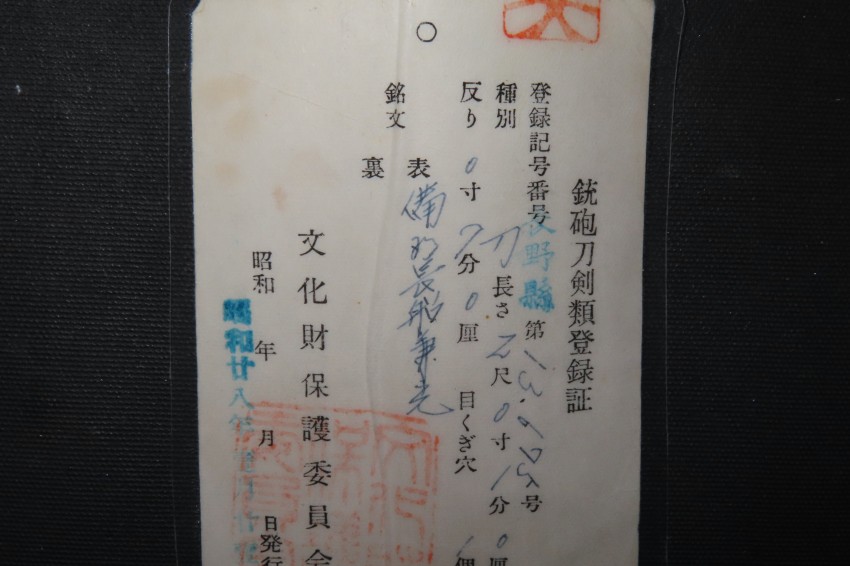 銃砲刀剣類登録証
登録記号番号 長野縣 第 号
種別 刀 長さ 2尺0寸1分0厘
反り 0寸7分0厘 目くぎ穴 1個
銘文 表 備州長船兼光
裏
文化財保護委員会
昭和 年 月 日発行
昭和廿八年 月